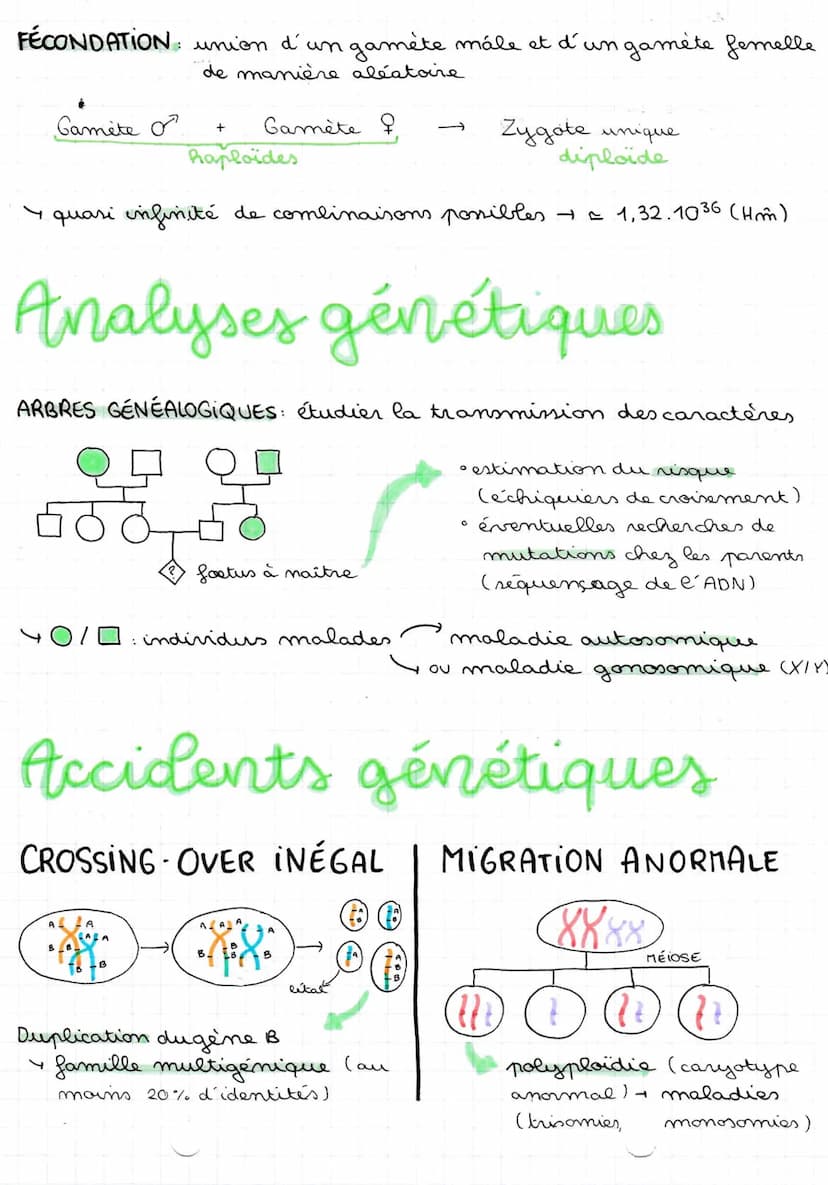 FÉCONDATION : union d'un gamète mâle et d'un gamète femelle
de manière aléatoire
Gamète ♂ + Gamète ♀ → Zygote unique
haploïdes diploïde
↳ quasi infinité de combinaisons possibles → ≃ 1,32.10³⁶ (Hm̂)
Analyses génétiques
ARBRES GÉNÉALOGIQUES : étudier la transmission des caractères
° estimation du risque
(échiquiers de croisement)
° éventuelles recherches de
mutations chez les parents
(séquençage de l'ADN)
? foetus à naître
↳ ○ / □ : individus malades → maladie autosomique
↳ ou maladie gonosomique (X/Y)
Accidents génétiques
CROSSING-OVER INÉGAL
A A A A B B B B
A A A A B B B B
A B
A B
A
A B B
Duplication du gène B
↳ famille multigénique (au
moins 20% d'identités)
MIGRATION ANORMALE
MÉIOSE
polyploïdie (caryotype
anormal) → maladies
(trisomies, monosomies)